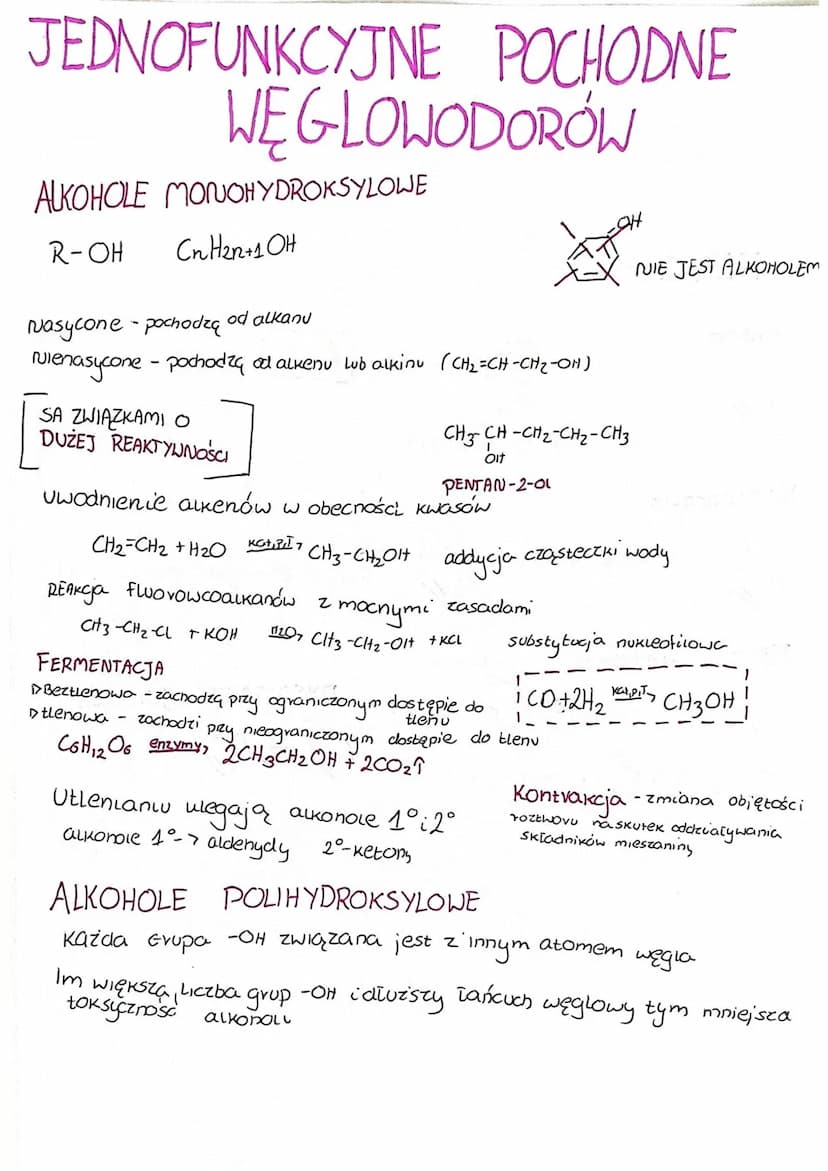 JEDNOFUNKCYJNE POCHODNE
WĘGLOWODORÓW
ALKOHOLE MONOHYDROKSYLOWE
R-OH CnH2n+1OH
OH
NIE JEST ALKOHOLEM
Nasycone - pochodzą od alkanu
Nienasycone - pochodzą od alkenu lub alkinu (CH2=CH-CH2-OH)
SĄ ZWIĄZKAMI O
DUŻEJ REAKTYWNOŚCI
CH3-CH-CH2-CH2-CH3
OH
PENTAN-2-ol
Uwodnienie alkenów w obecności kwasów
CH2=CH2 + H2O kat,p,T→ CH3-CH2OH addycja cząsteczki wody
REAKcja fluorowcoalkanów z mocnymi zasadami
CH3-CH2-Cl + KOH H2O→ CH3-CH2-OH + KCl substytucja nukleofilowa
FERMENTACJA
▷ Beztlenowa - zachodzą przy ograniczonym dostępie do
tlenu
▷ tlenowa - zachodzi przy nieograniczonym dostępie do tlenu
C6H12O6 enzymy→ 2CH3CH2OH + 2CO2↑
CO+2H2 kat,p,T→ CH3OH
Utlenianiu ulegają alkohole 1° i 2°
alkohole 1° -> aldehydy 2°-ketony
Kontrakcja - zmiana objętości
roztworu na skutek oddziaływania
składników mieszaniny
ALKOHOLE POLIHYDROKSYLOWE
Każda Grupa -OH związana jest z innym atomem węgla
Im większa liczba grup -OH i dłuższy łańcuch węglowy tym mniejsza
toksyczność alkoholu